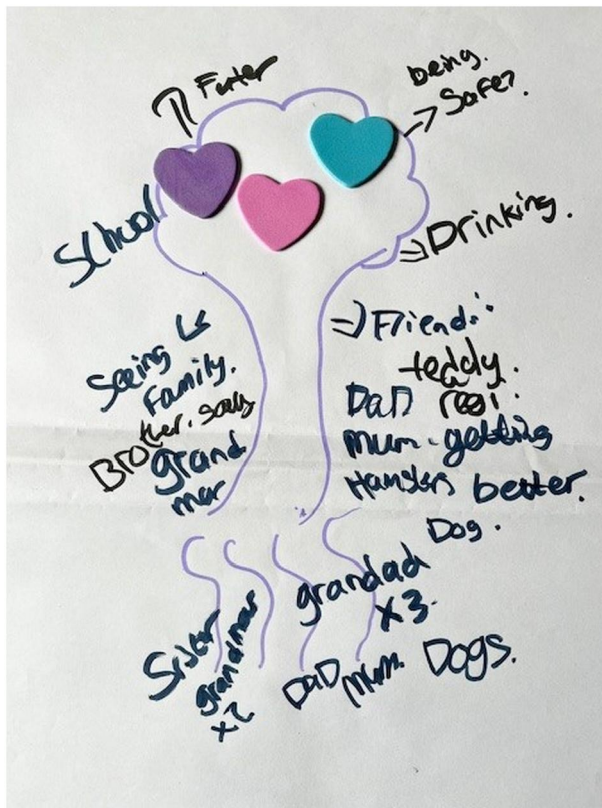 Futer
being.
Safe?
School
Drinking.
Seeing
Family.
Brother. Sally
grand
mar
Friend:
teddy.
DaD real:
mum. getting
Hamsters better.
Dog.
grandad
x3.
Sister
grandmar
x2
DaD mum. Dogs.